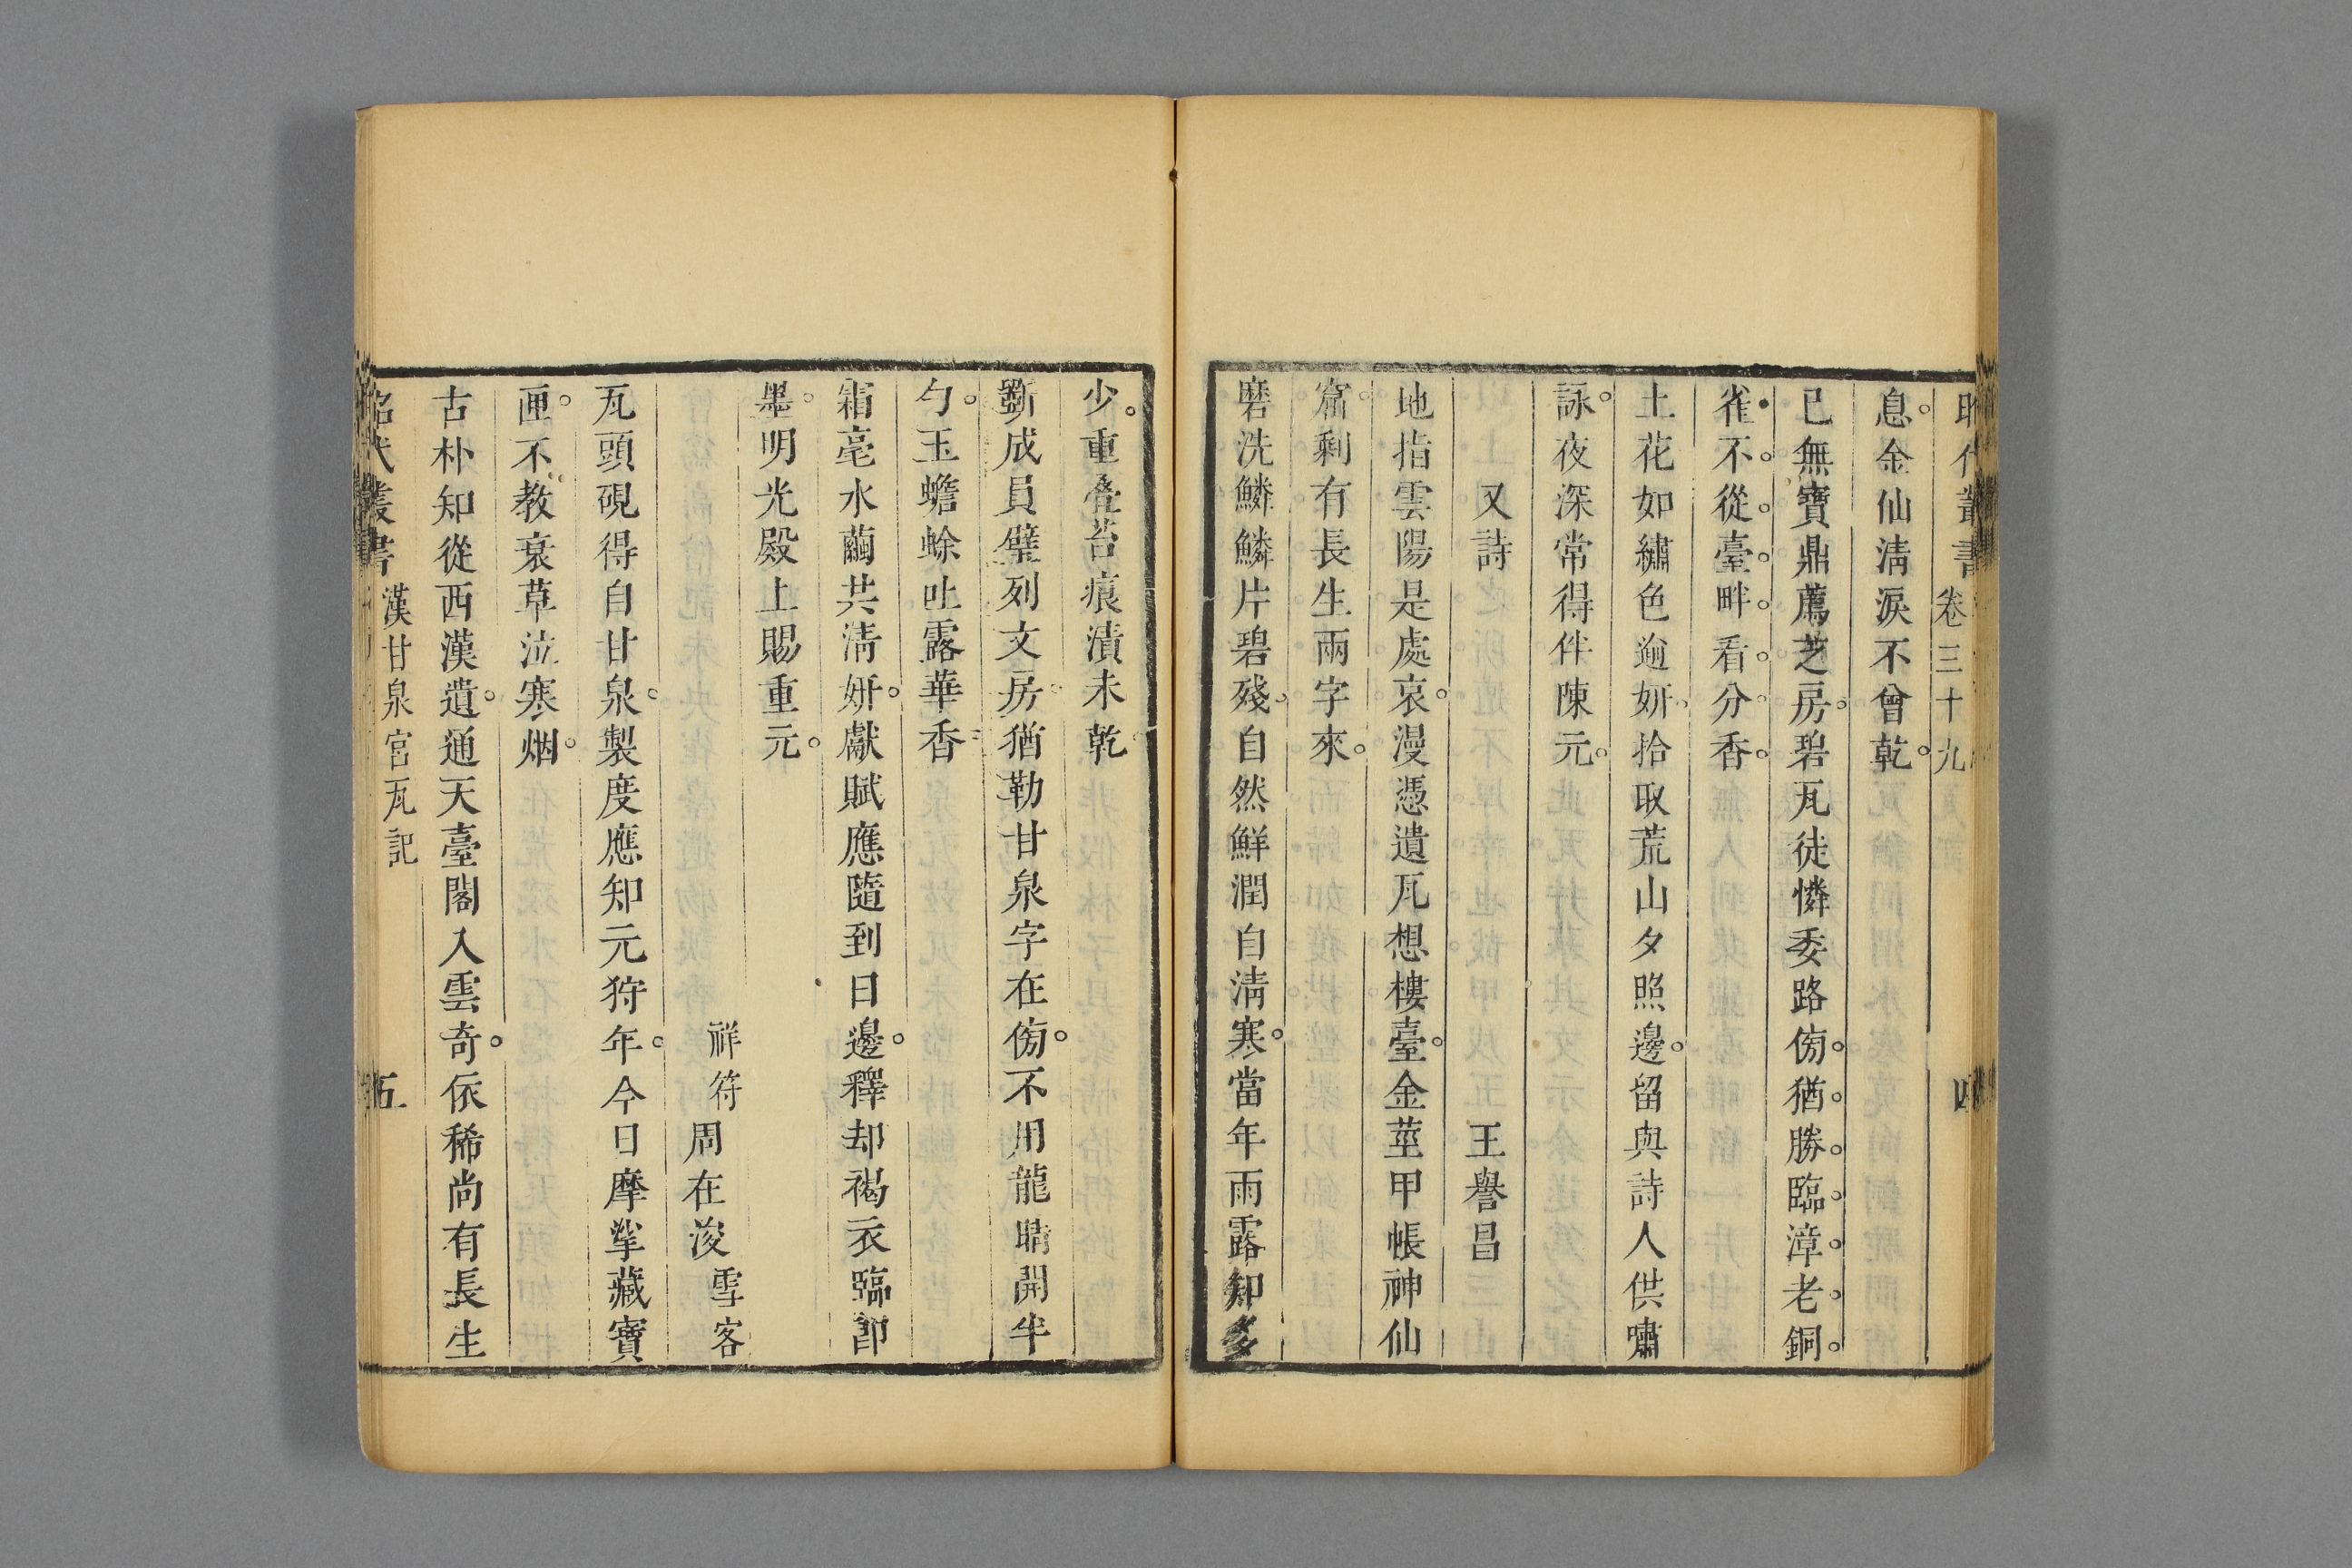 昭代叢書 卷三十九 四
息金仙淸淚不曾乾
已無寶鼎薦芝房碧瓦徒憐委路傍猶勝臨漳老銅
雀不從臺畔看分香
土花如繡色逾妍拾取荒山夕照邊留與詩人供嘯
詠夜深常得伴陳元
又詩 王譽昌
地指雲陽是處哀漫憑遺瓦想樓臺金莖甲帳神仙
窟剩有長生兩字來
磨洗鱗鱗片碧殘自然鮮潤自淸寒當年雨露知多
少重疊苔痕漬未乾
斲成員璧列文房猶勒甘泉字在傍不用龍睛開半
勺玉蟾蜍吐露華香
霜毫水繭共淸妍獻賦應隨到日邊釋却褐衣臨卽
墨明光殿上賜重元
祥符周在浚雪客
瓦頭硯得自甘泉製度應知元狩年今日摩挲藏寶
匣不教衰草泣寒烟
古朴知從西漢遺通天臺閣入雲奇依稀尙有長生
昭代叢書 漢甘泉宮瓦記 五